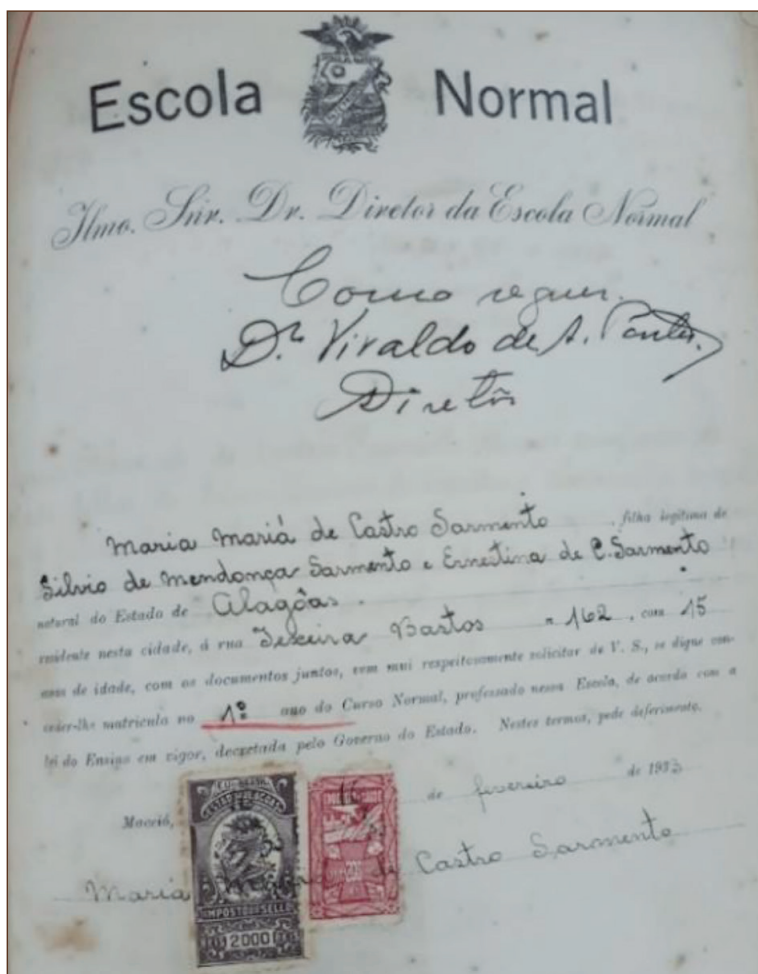 Escola Normal
Ilmo. Snr. Dr. Diretor da Escola Normal
Como requer.
Dr. Viraldo de A. Pontes.
Diretôr
Maria Mariá de Castro Sarmento, filha legitima de
Silvio de Mendonça Sarmento e Ernestina de C. Sarmento
natural do Estado de Alagôas.
residente nesta cidade, á rua Teixeira Bastos n. 162, com 15
anos de idade, com os documentos juntos, vem mui respeitosamente solicitar de V. S., se digne con-
ceder-lhe matricula no 1º ano do Curso Normal, professado nessa Escola, de acordo com a
lei do Ensino em vigor, decretada pelo Governo do Estado. Nestes termos, pede deferimento.
Maceió, 16 de fevereiro de 1933
Maria de Castro Sarmento
IMPOSTO DO SELLO
REIS 2000 REIS